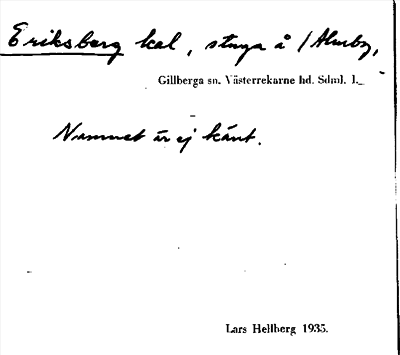 Eriksberg kal, stuga å /Almby,
Gillberga sn. Västerrekarne hd. Sdml. l.
Namnet är ej känt.
Lars Hellberg 1935.